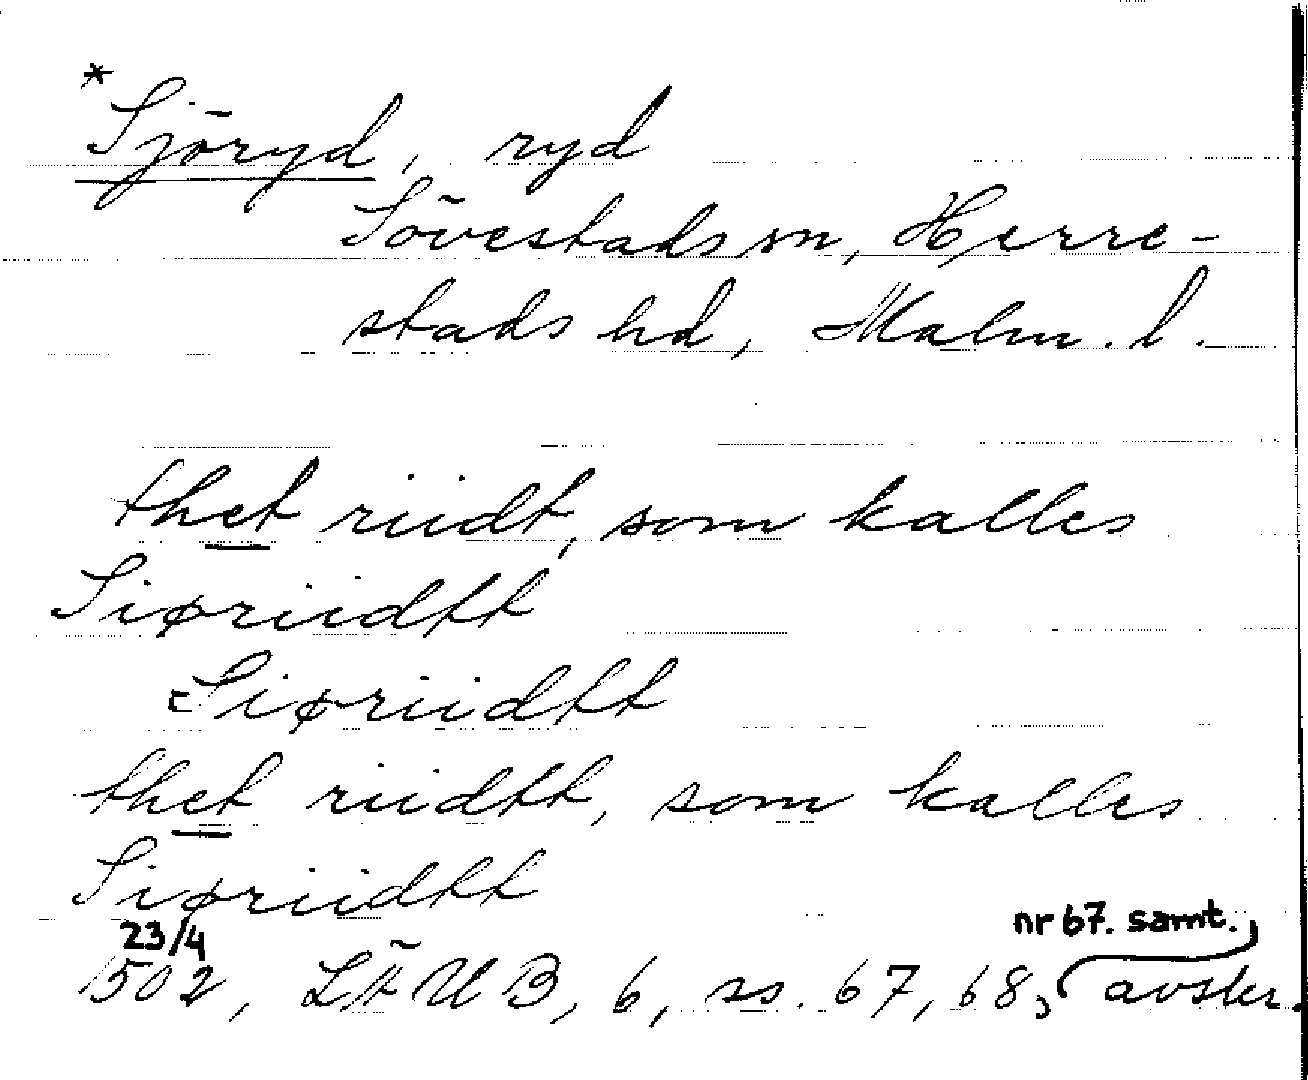 *Sjöryd, ryd
Sövestads sn, Herre-
stads hd, Malm. l.
thet riidt, som kalles
Siøriidtt
Siøriidtt
thet riidtt, som kalles
Siøriidtt
23/4 nr 67. samt.
1502, LÄUB, 6, ss. 67, 68, avskr.